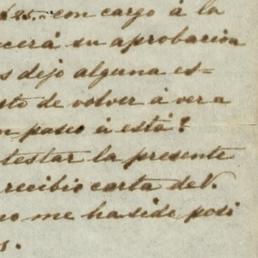 con cargo á la
cerá su aprobacion
s dejo alguna es=
sto de volver á ver a
n paseo á está?
testar la presente
recibio carta de V.
no me ha sido posi
s.